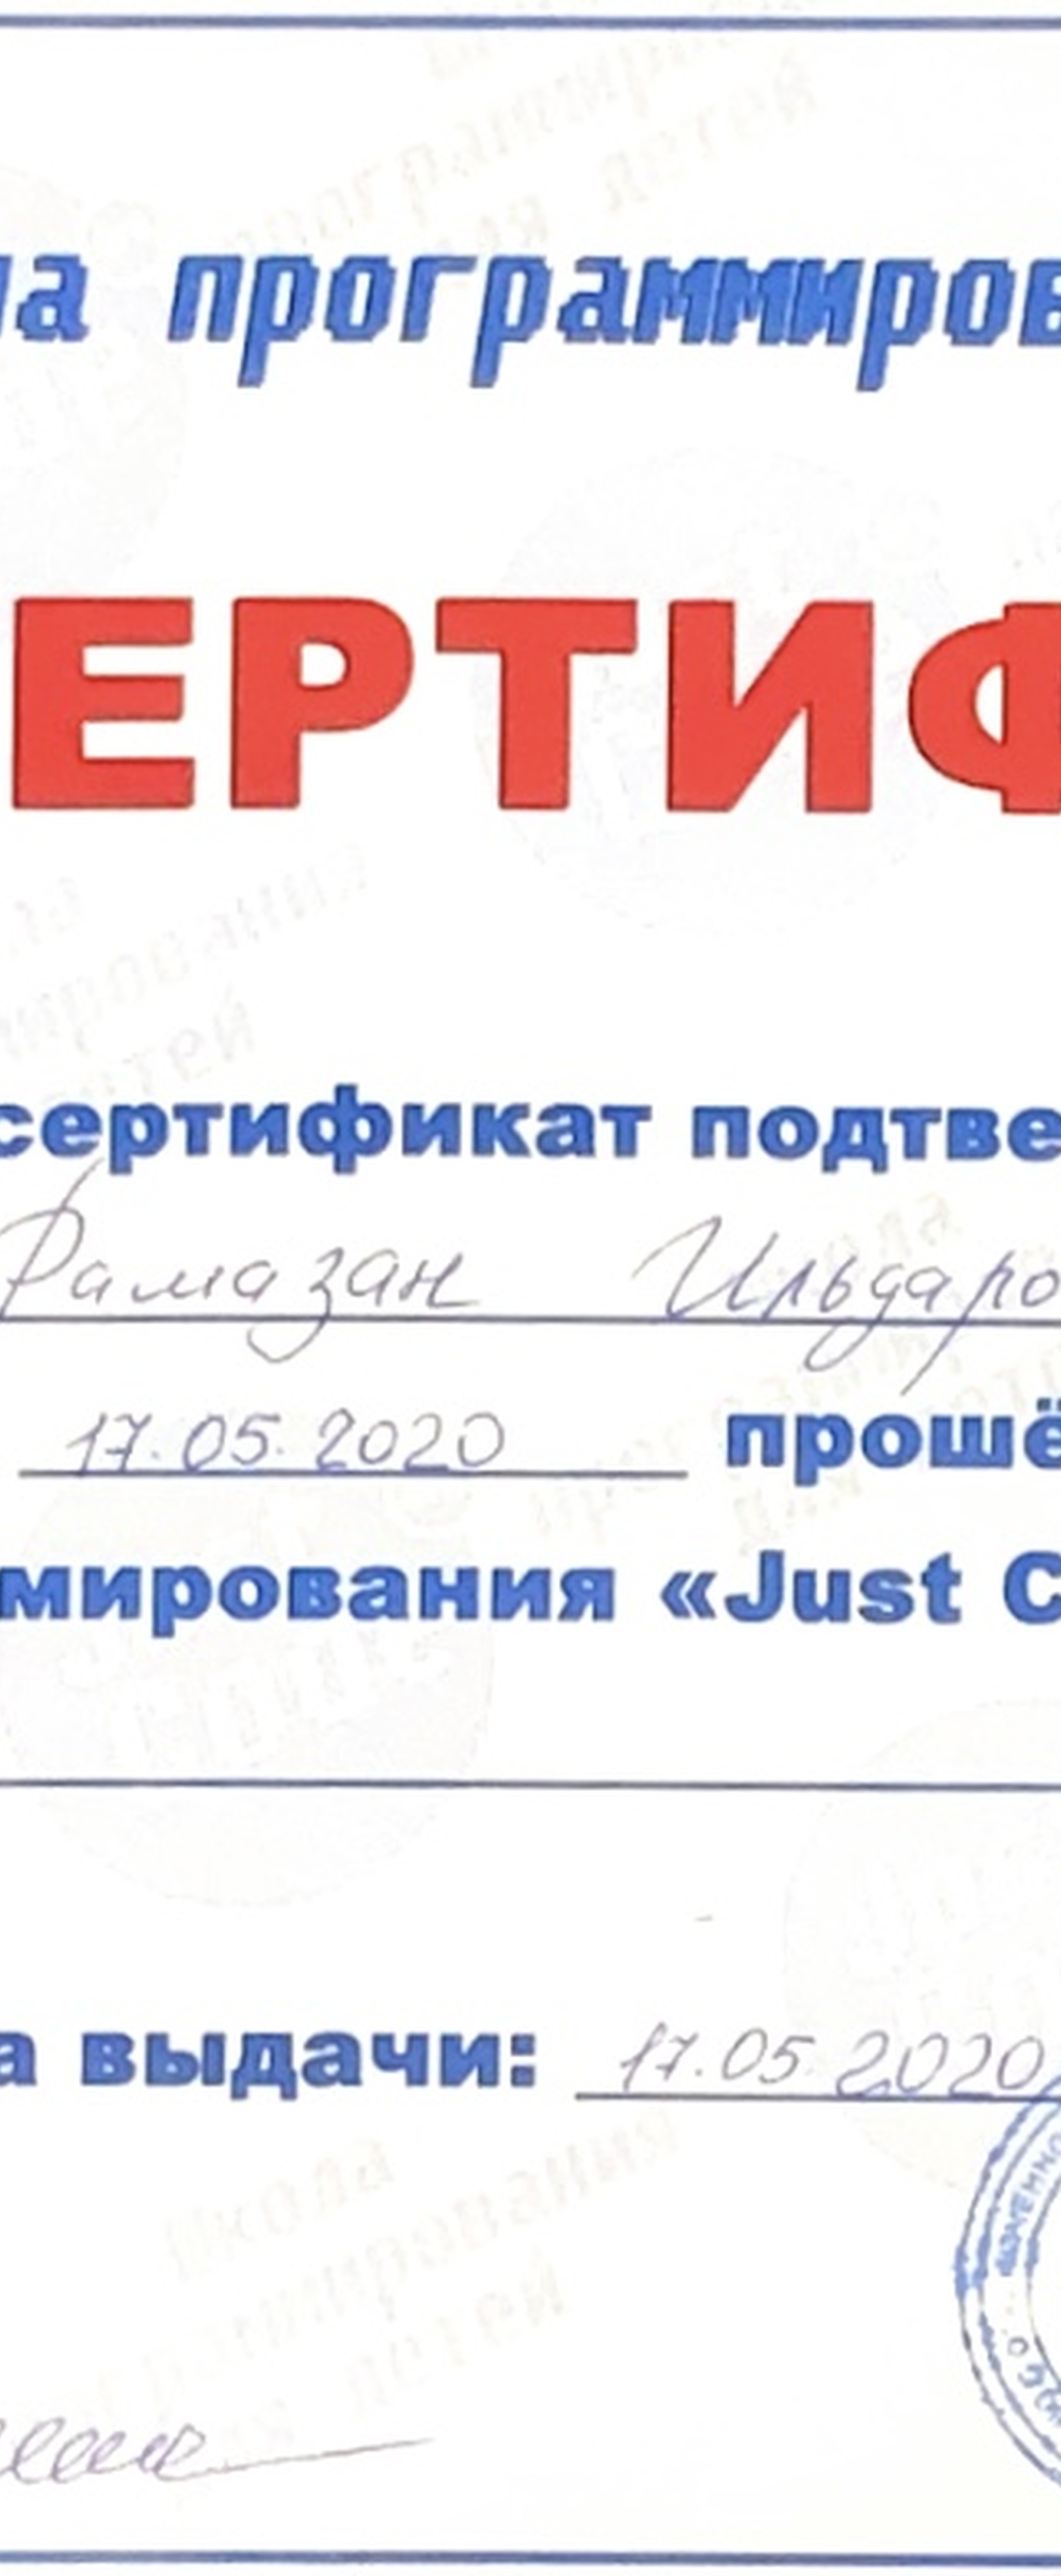 на программиров
ЕРТИФ
сертификат подтве
Рамазан Ильдаро
17.05.2020 прошё
мирования «Just C
а выдачи: 17.05.2020